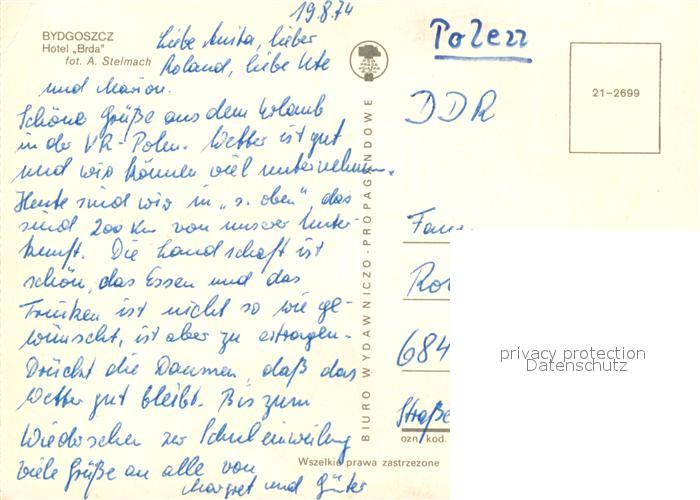 19.8.74
BYDGOSZCZ
Hotel „Brda"
fot. A. Stelmach
Liebe Anita, lieber
Roland, liebe Ute
und Marion.
Schöne Grüße aus dem Urlaub
in der VR-Polen. Wetter ist gut
und wir können viel unternehmen.
Heute sind wir in „s. oben", das
sind 200 km von unserer Unter-
kunft. Die Landschaft ist
schön, das Essen und das
Trinken ist nicht so wie ge-
wünscht, ist aber zu ertragen.
Drückt die Daumen, daß das
Wetter gut bleibt. Bis zum
Wiedersehen zur Schuleinweihung
viele Grüße an alle von
Margret und Günter
PSW
PRASA
KSIĄŻKA
RUCH
BIURO WYDAWNICZO-PROPAGANDOWE
Polen
DDR
21-2699
Fam
Rol
684
Straße
ozn. kod.
Wszelkie prawa zastrzeżone
privacy protection
Datenschutz